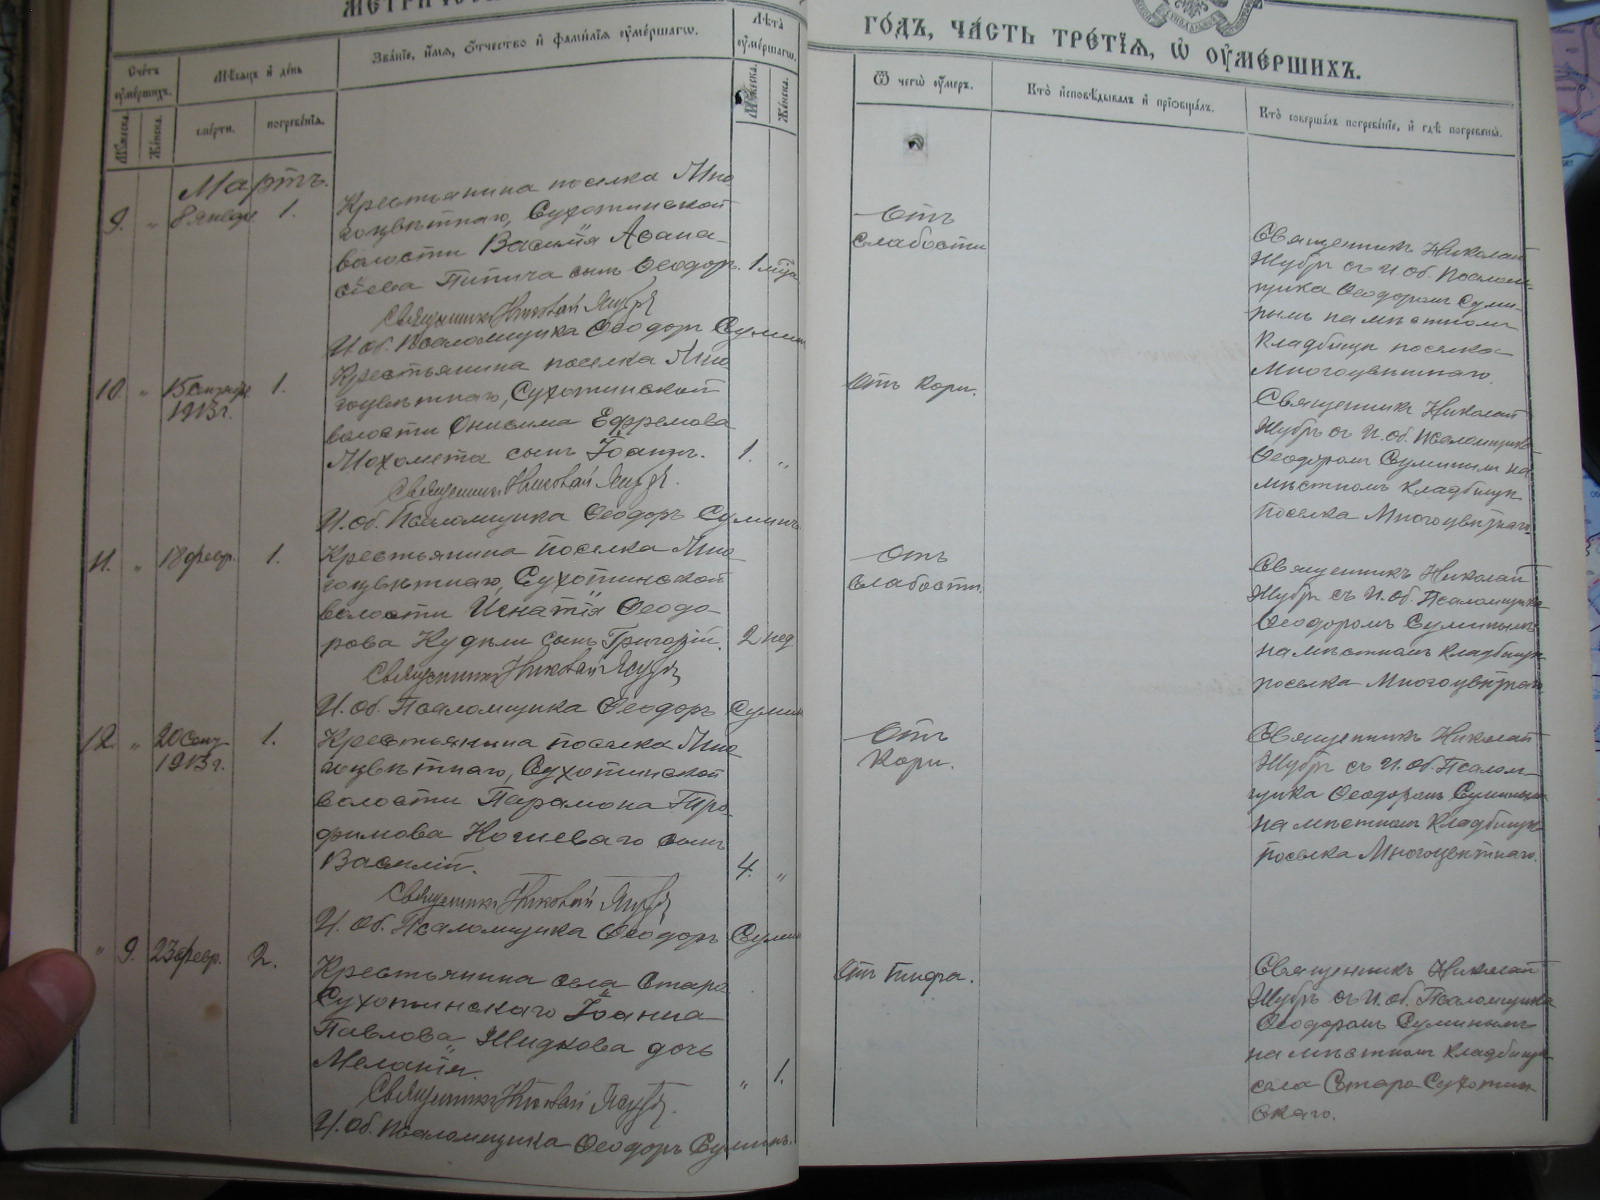 МЕТРИЧЕС
ГОДЪ, ЧАСТЬ ТРЕТІЯ, Ѡ ОУМЕРШИХЪ.
Счетъ оумершихъ.
Мѣсяцъ и день
Званіе, имя, отчество и фамилія оумершагѡ.
Лѣта оумершагѡ.
Мужеска.
Женска.
смерти.
погребенія.
Мужеска.
Женска.
Ѿ чегѡ оумеръ.
Кто исповѣдывалъ и пріобщалъ.
Кто совершалъ погребеніе, и гдѣ погребены.
Мартъ.
9. „ 8 января 1.
Крестьянина поселка Мно
гоцвѣтнаго, Сухотинской
волости Василія Афана
сіева сынъ Ѳеодоръ. 1 мѣся
Священникъ Николай
И. об. Псаломщика Ѳеодоръ Сумин
Отъ
слабости
Священникъ Николай
съ И. об. Псалом-
щика Ѳеодоромъ Суми-
нымъ на мѣстномъ
кладбищѣ поселка
Многоцвѣтнаго.
10. „ 15 сентября 1.
1913 г.
Крестьянина поселка Мно
гоцвѣтнаго, Сухотинской
волости Онисима Ефремова
сынъ Іоаннъ. 1. „
Священникъ Николай
И. об. Псаломщика Ѳеодоръ Суминъ
Отъ кори.
Священникъ Николай
съ И. об. Псаломщика
Ѳеодоромъ Суминымъ на
мѣстномъ кладбищѣ
поселка Многоцвѣтнаго.
11. „ 18 февр. 1.
Крестьянина поселка Мно
гоцвѣтнаго, Сухотинской
волости Игнатія Ѳеодо-
рова сынъ Григорій. 2 нед
Священникъ Николай
И. об. Псаломщика Ѳеодоръ Сумин
Отъ
слабости.
Священникъ Николай
съ И. об. Псаломщика
Ѳеодоромъ Суминымъ
на мѣстномъ кладбищѣ
поселка Многоцвѣтнаго
12. „ 20 сент 1.
1913 г.
Крестьянина поселка Мно
гоцвѣтнаго, Сухотинской
волости Парамона Тро
фимова сынъ
Василій. 4. „
Священникъ Николай
И. об. Псаломщика Ѳеодоръ Сумин
Отъ
Кори.
Священникъ Николай
съ И. об. Псалом-
щика Ѳеодоромъ Суминымъ
на мѣстномъ кладбищѣ
поселка Многоцвѣтнаго.
„ 9. 23 февр. 2.
Крестьянина села Старо
Сухотинскаго Іоанна
Павлова Жидкова дочь
Меланія. „ 1.
Священникъ Николай
И. об. Псаломщика Ѳеодоръ Суминъ.
Отъ тифа.
Священникъ Николай
съ И. об. Псаломщика
Ѳеодоромъ Суминымъ
на мѣстномъ кладбищѣ
села Старо Сухотин
скаго.